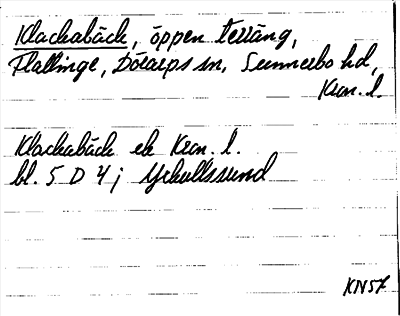 Klackabäck, öppen terräng,
Flattinge, Dörarps sn, Sunnerbo hd,
Kron. l.
Klackabäck ek Kron. l.
bl. 5 D 4 j
KN57